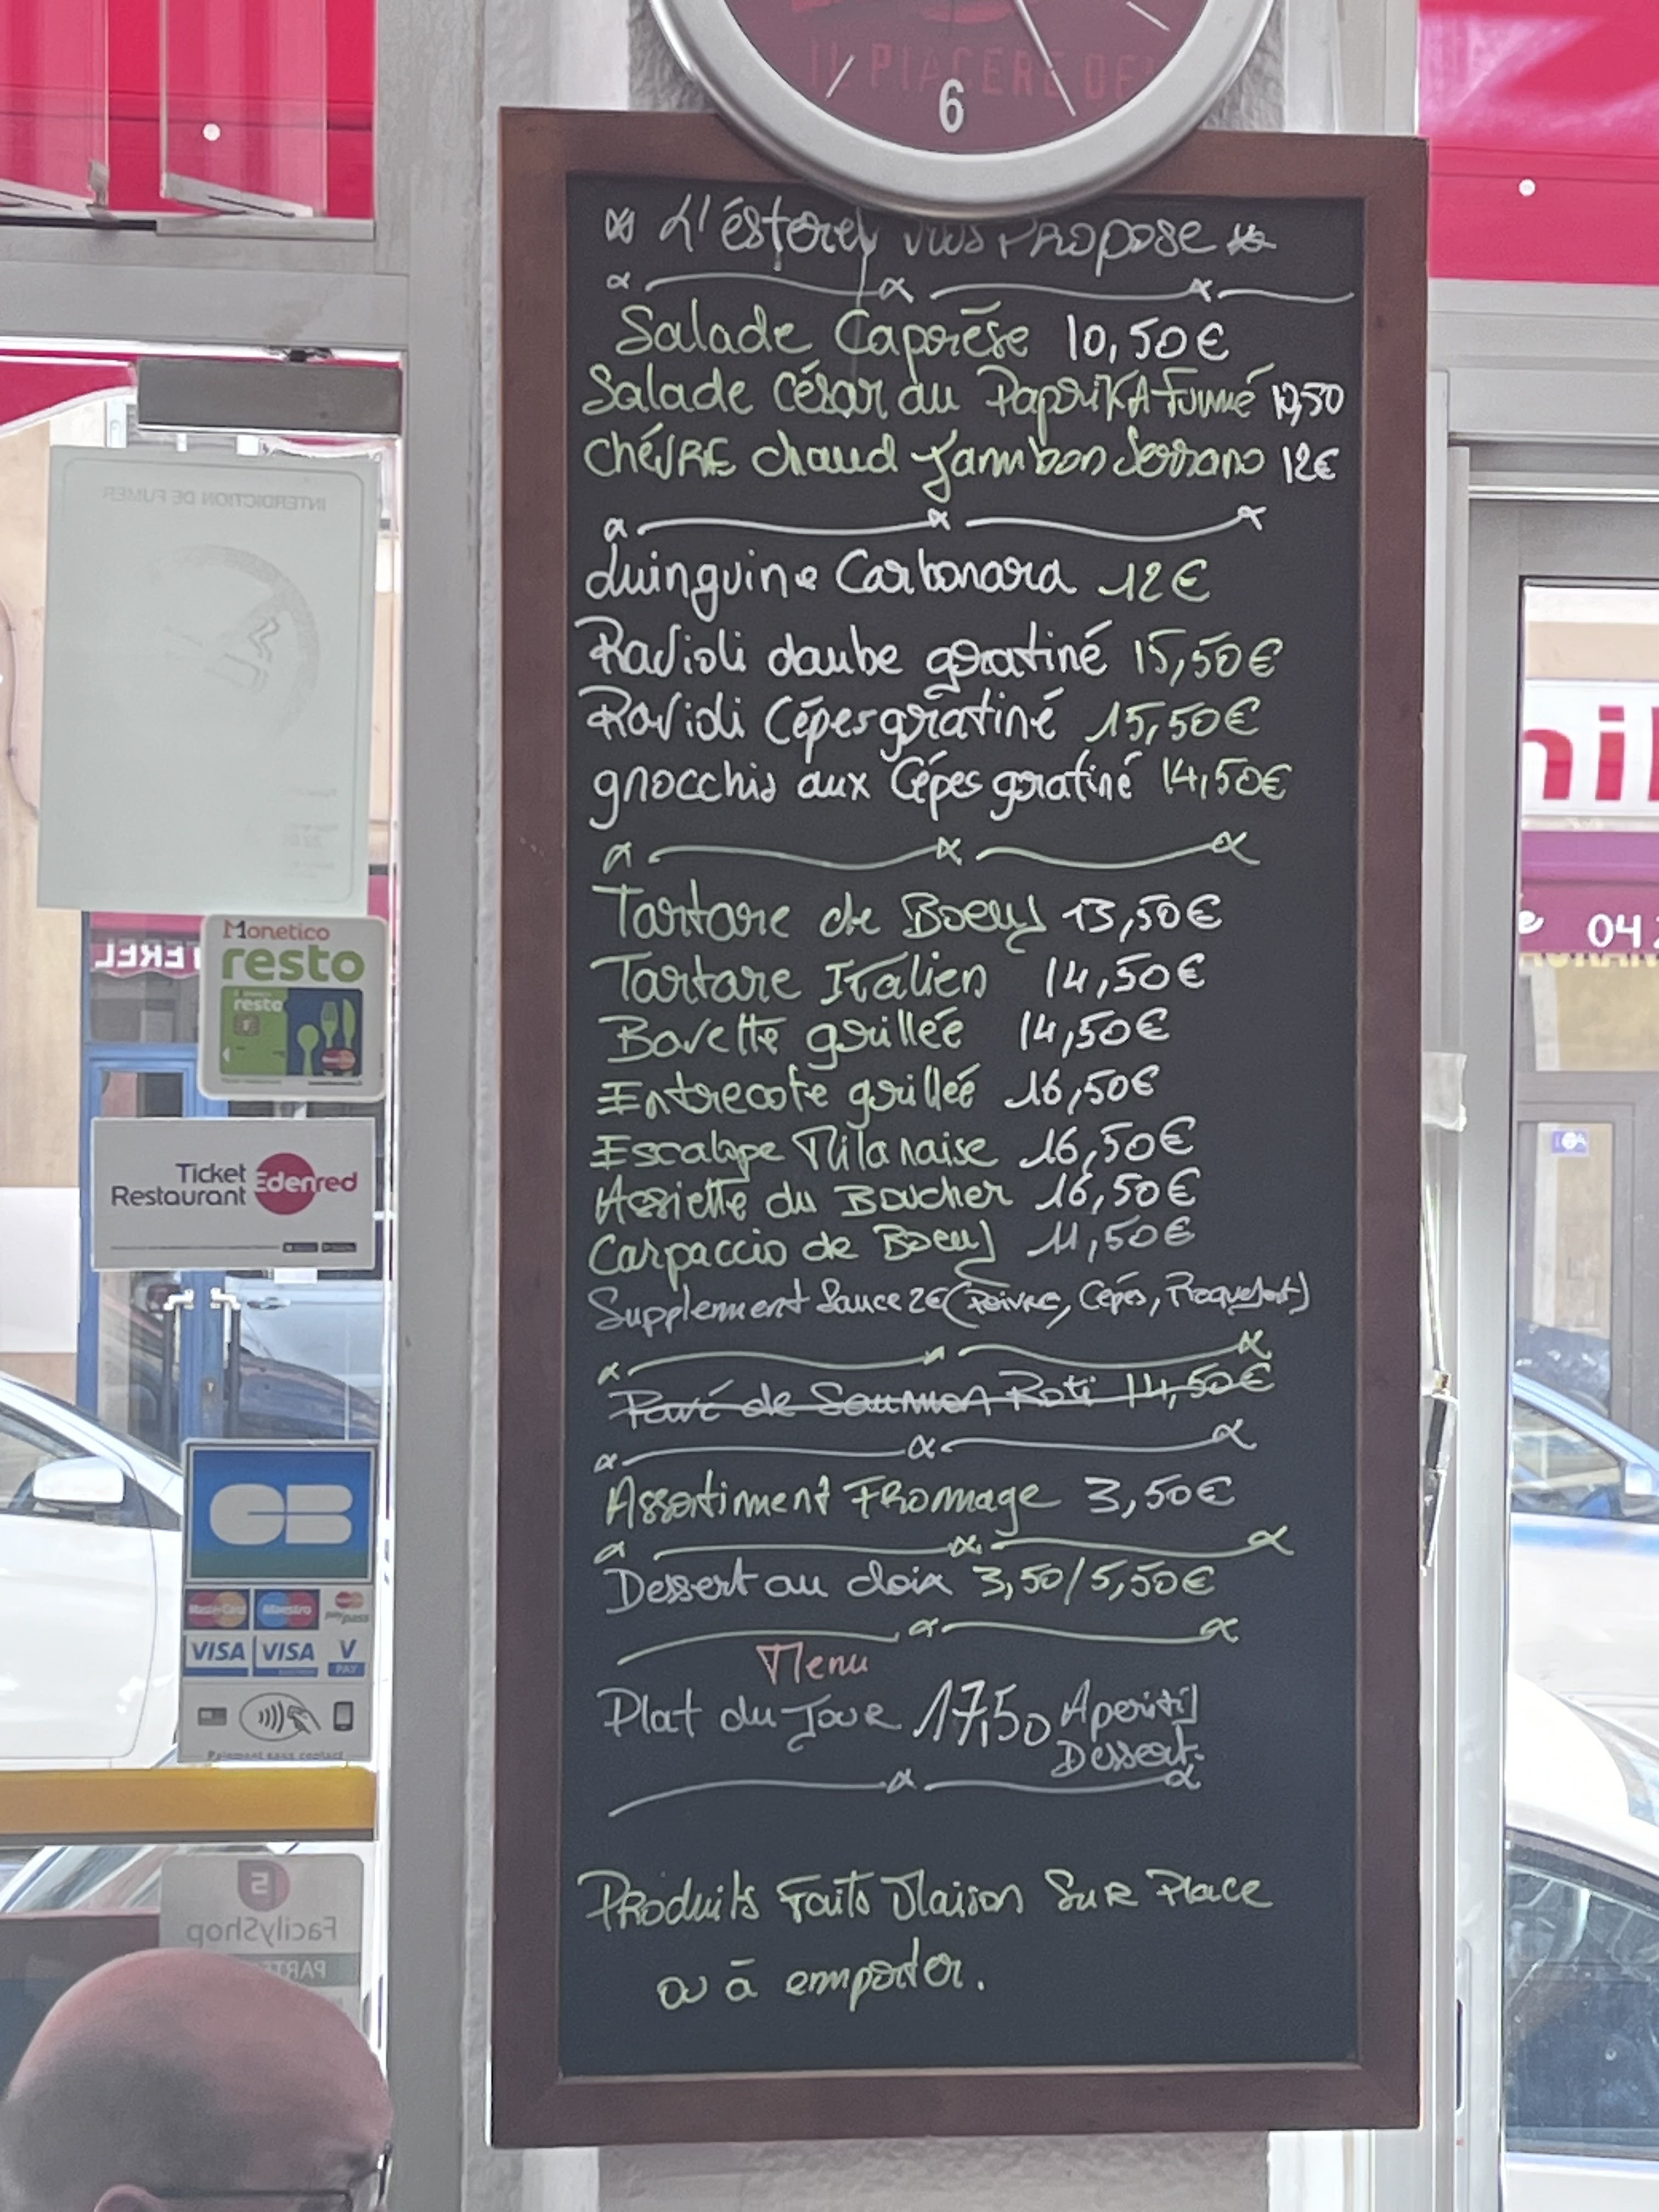 IL PIACERE DEL
6
L'ésterel vous PROPOSE
Salade Caprése 10,50€
Salade César au PapriKA Fumé
ChéVRE chaud Jambon Serrano 12€
Luinguine Carbonara 12€
Ravioli daube gratiné 15,50€
Ravioli Cépes gratiné 15,50€
gnocchis aux Cépes gratiné 14,50€
Tartare de Boeuf 13,50€
Tartare Italien 14,50€
Bavette grillée 14,50€
Entrecote grillée 16,50€
Escalope Milanaise 16,50€
Assiette du Boucher 16,50€
Carpaccio de Boeuf 11,50€
Supplement Sauce 2€ (Poivre, Cépes, Roquefort)
Pavé de Saumon Roti 14,50€
Assortiment Fromage 3,50€
Dessert au choix 3,50/5,50€
Menu
Plat du Jour 17,50 Aperitif
Dessert.
Produits Faits Maison SuR Place
ou à emporter.
INTERDICTION DE FUMER
EREL
Monetico
resto
resto
Ticket
Restaurant
Edenred
CB
MasterCard
Maestro
paypass
VISA
VISA
V
PAY
Paiement sans contact
FacilyShop
PARTE
nil
04